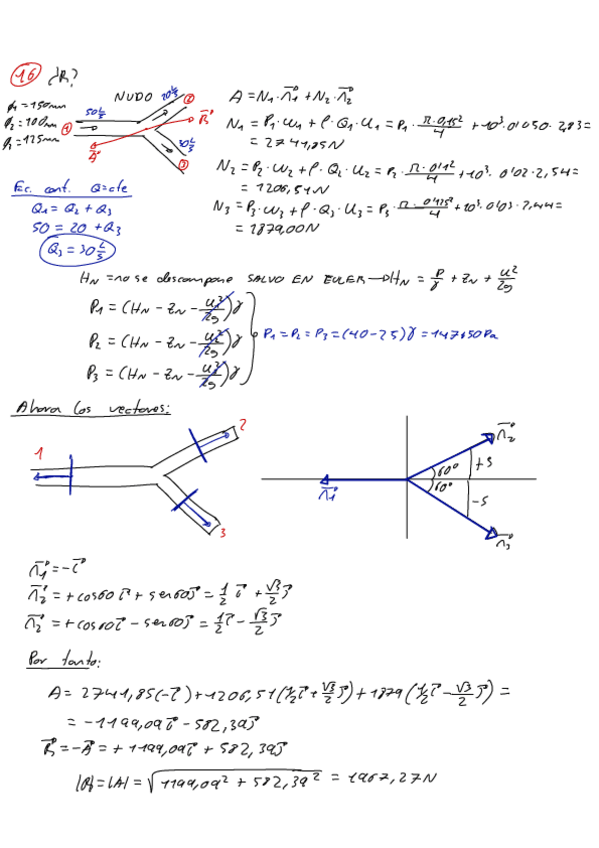 16 ¿R?
NUDO
φ1 = 150mm
φ2 = 100mm
φ3 = 125mm
50 L/s
20 L/s
30 L/s
1
2
3
R
A
A = N1·n1 + N2·n2
N1 = P1·W1 + ρ·Q1·U1 = P1·π·0'15²/4 + 10³·0'050·2,83 =
= 2741,85N
N2 = P2·W2 + ρ·Q2·U2 = P2·π·0'1²/4 + 10³·0'02·2,54 =
= 1206,51N
N3 = P3·W3 + ρ·Q3·U3 = P3·π·0'125²/4 + 10³·0'03·2,44 =
= 1879,00N
Ec. cont. Q=cte
Q1 = Q2 + Q3
50 = 20 + Q3
Q3 = 30 L/s
HN = no se descompone SALVO EN EULER → HN = P/γ + ZN + U²/2g
P1 = (HN - ZN - U1²/2g)γ
P2 = (HN - ZN - U2²/2g)γ
P3 = (HN - ZN - U3²/2g)γ
P1 = P2 = P3 = (40-25)γ = 147150Pa
Ahora los vectores:
1
2
3
n1
n2
n3
60°
60°
+S
-S
n1 = -i
n2 = +cos60 i + sen60 j = 1/2 i + √3/2 j
n2 = +cos60 i - sen60 j = 1/2 i - √3/2 j
Por tanto:
A = 2741,85(-i) + 1206,51(1/2 i + √3/2 j) + 1879(1/2 i - √3/2 j) =
= -1199,09i - 582,39j
R = -A = +1199,09i + 582,39j
|R| = |A| = √1199,09² + 582,39² = 1967,27N